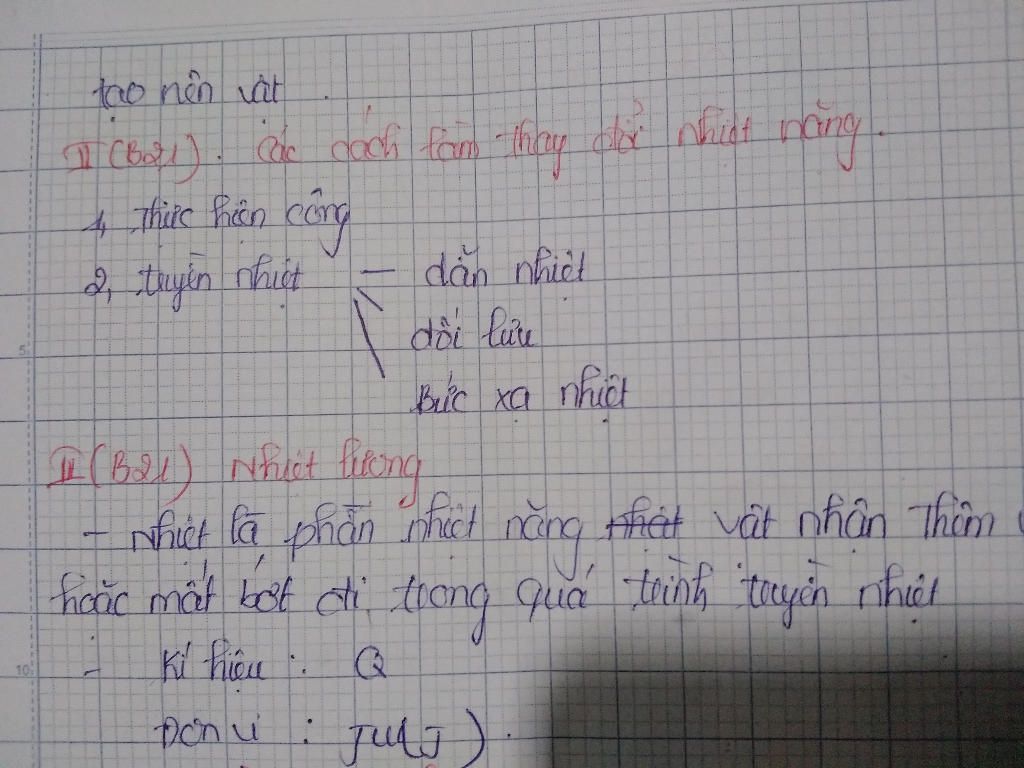 tạo nên vật.
II (B21). Các cách làm thay đổi nhiệt năng.
1, Thực hiện công
2, truyền nhiệt — dẫn nhiệt
đối lưu
Bức xạ nhiệt
II (B21) Nhiệt lượng
- nhiệt là phần nhiệt năng nhiệt vật nhận thêm
hoặc mất bớt đi trong quá trình truyền nhiệt
- Kí hiệu : Q
Đơn vị : Ju(J).
5
10